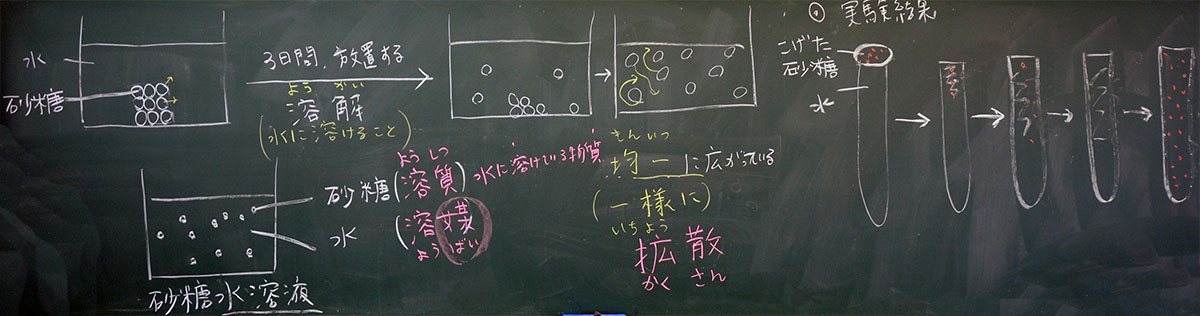 水
砂糖
3日間、放置する
ようかい
溶解
(水に溶けること)
砂糖
ようしつ
(溶質)
水に溶けている物質
水
(溶媒)
ようばい
砂糖水溶液
きんいつ
均一に広がっている
(一様に)
いちよう
拡散
かくさん
◎実験結果
こげた
砂糖
水